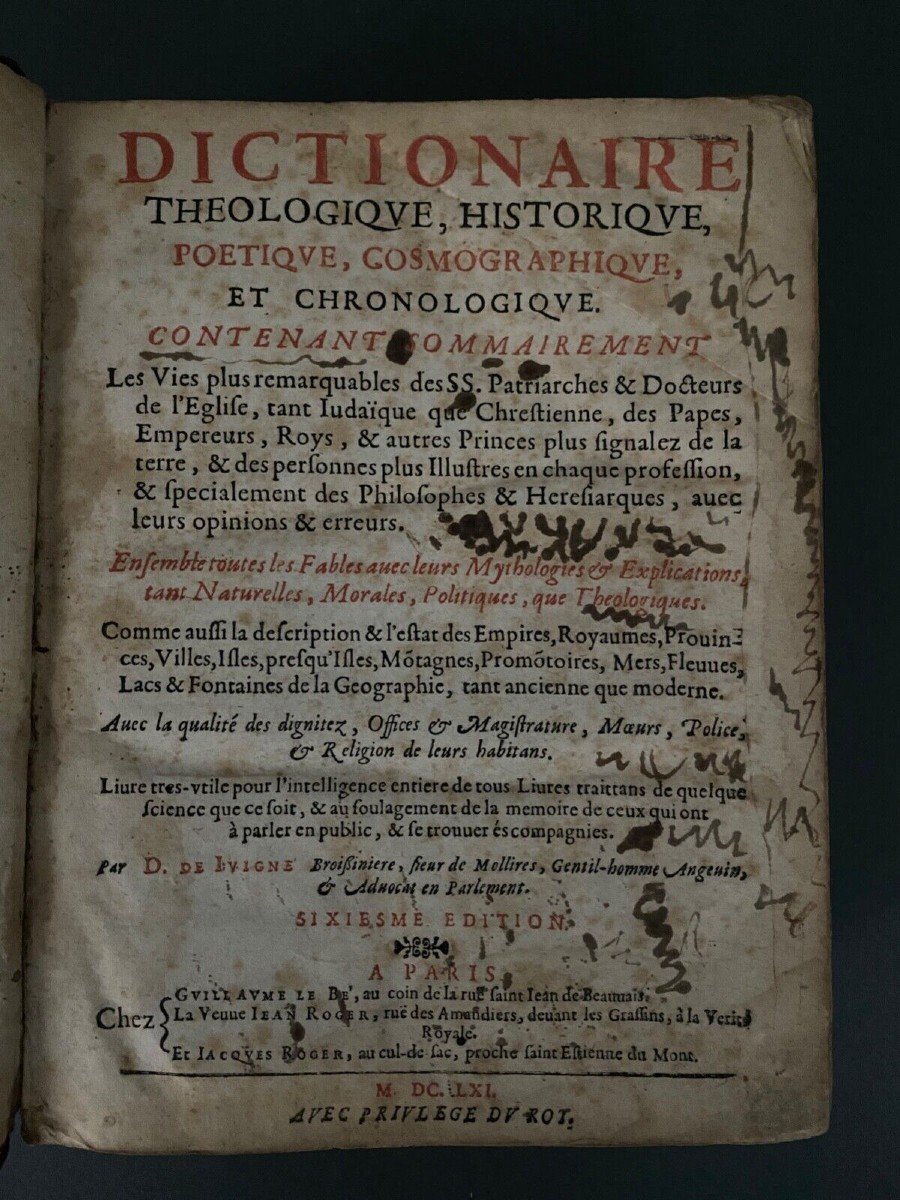 DICTIONAIRE
THEOLOGIQVE, HISTORIQVE,
POETIQVE, COSMOGRAPHIQVE,
ET CHRONOLOGIQVE.
CONTENANT SOMMAIREMENT
Les Vies plus remarquables des SS. Patriarches & Docteurs
de l'Egliſe, tant Iudaïque que Chreſtienne, des Papes,
Empereurs, Roys, & autres Princes plus ſignalez de la
terre, & des perſonnes plus Illuſtres en chaque profeſſion,
& ſpecialement des Philoſophes & Hereſiarques, auec
leurs opinions & erreurs.
Enſemble toutes les Fables auec leurs Mythologies & Explications,
tant Naturelles, Morales, Politiques, que Theologiques.
Comme auſſi la deſcription & l'eſtat des Empires, Royaumes, Prouin-
ces, Villes, Iſles, preſqu'Iſles, Mõtagnes, Promõtoires, Mers, Fleuues,
Lacs & Fontaines de la Geographie, tant ancienne que moderne.
Auec la qualité des dignitez, Offices & Magiſtrature, Mœurs, Police,
& Religion de leurs habitans.
Liure tres-vtile pour l'intelligence entiere de tous Liures traittans de quelque
ſcience que ce ſoit, & au ſoulagement de la memoire de ceux qui ont
à parler en public, & ſe trouuer és compagnies.
Par D. DE IVIGNÉ Broiſſiniere, ſieur de Mollires, Gentil-homme Angeuin,
& Aduocat en Parlement.
SIXIESME EDITION.
A PARIS,
Chez
GVILLAVME LE BÉ, au coin de la ruë ſaint Iean de Beauuais.
La Veuue IEAN ROGER, ruë des Amandiers, deuant les Graſſins, à la Verité
Royale.
Et IACQVES ROGER, au cul-de ſac, proche ſaint Eſtienne du Mont.
M. DC. LXI.
AVEC PRIVLEGE DV ROY.